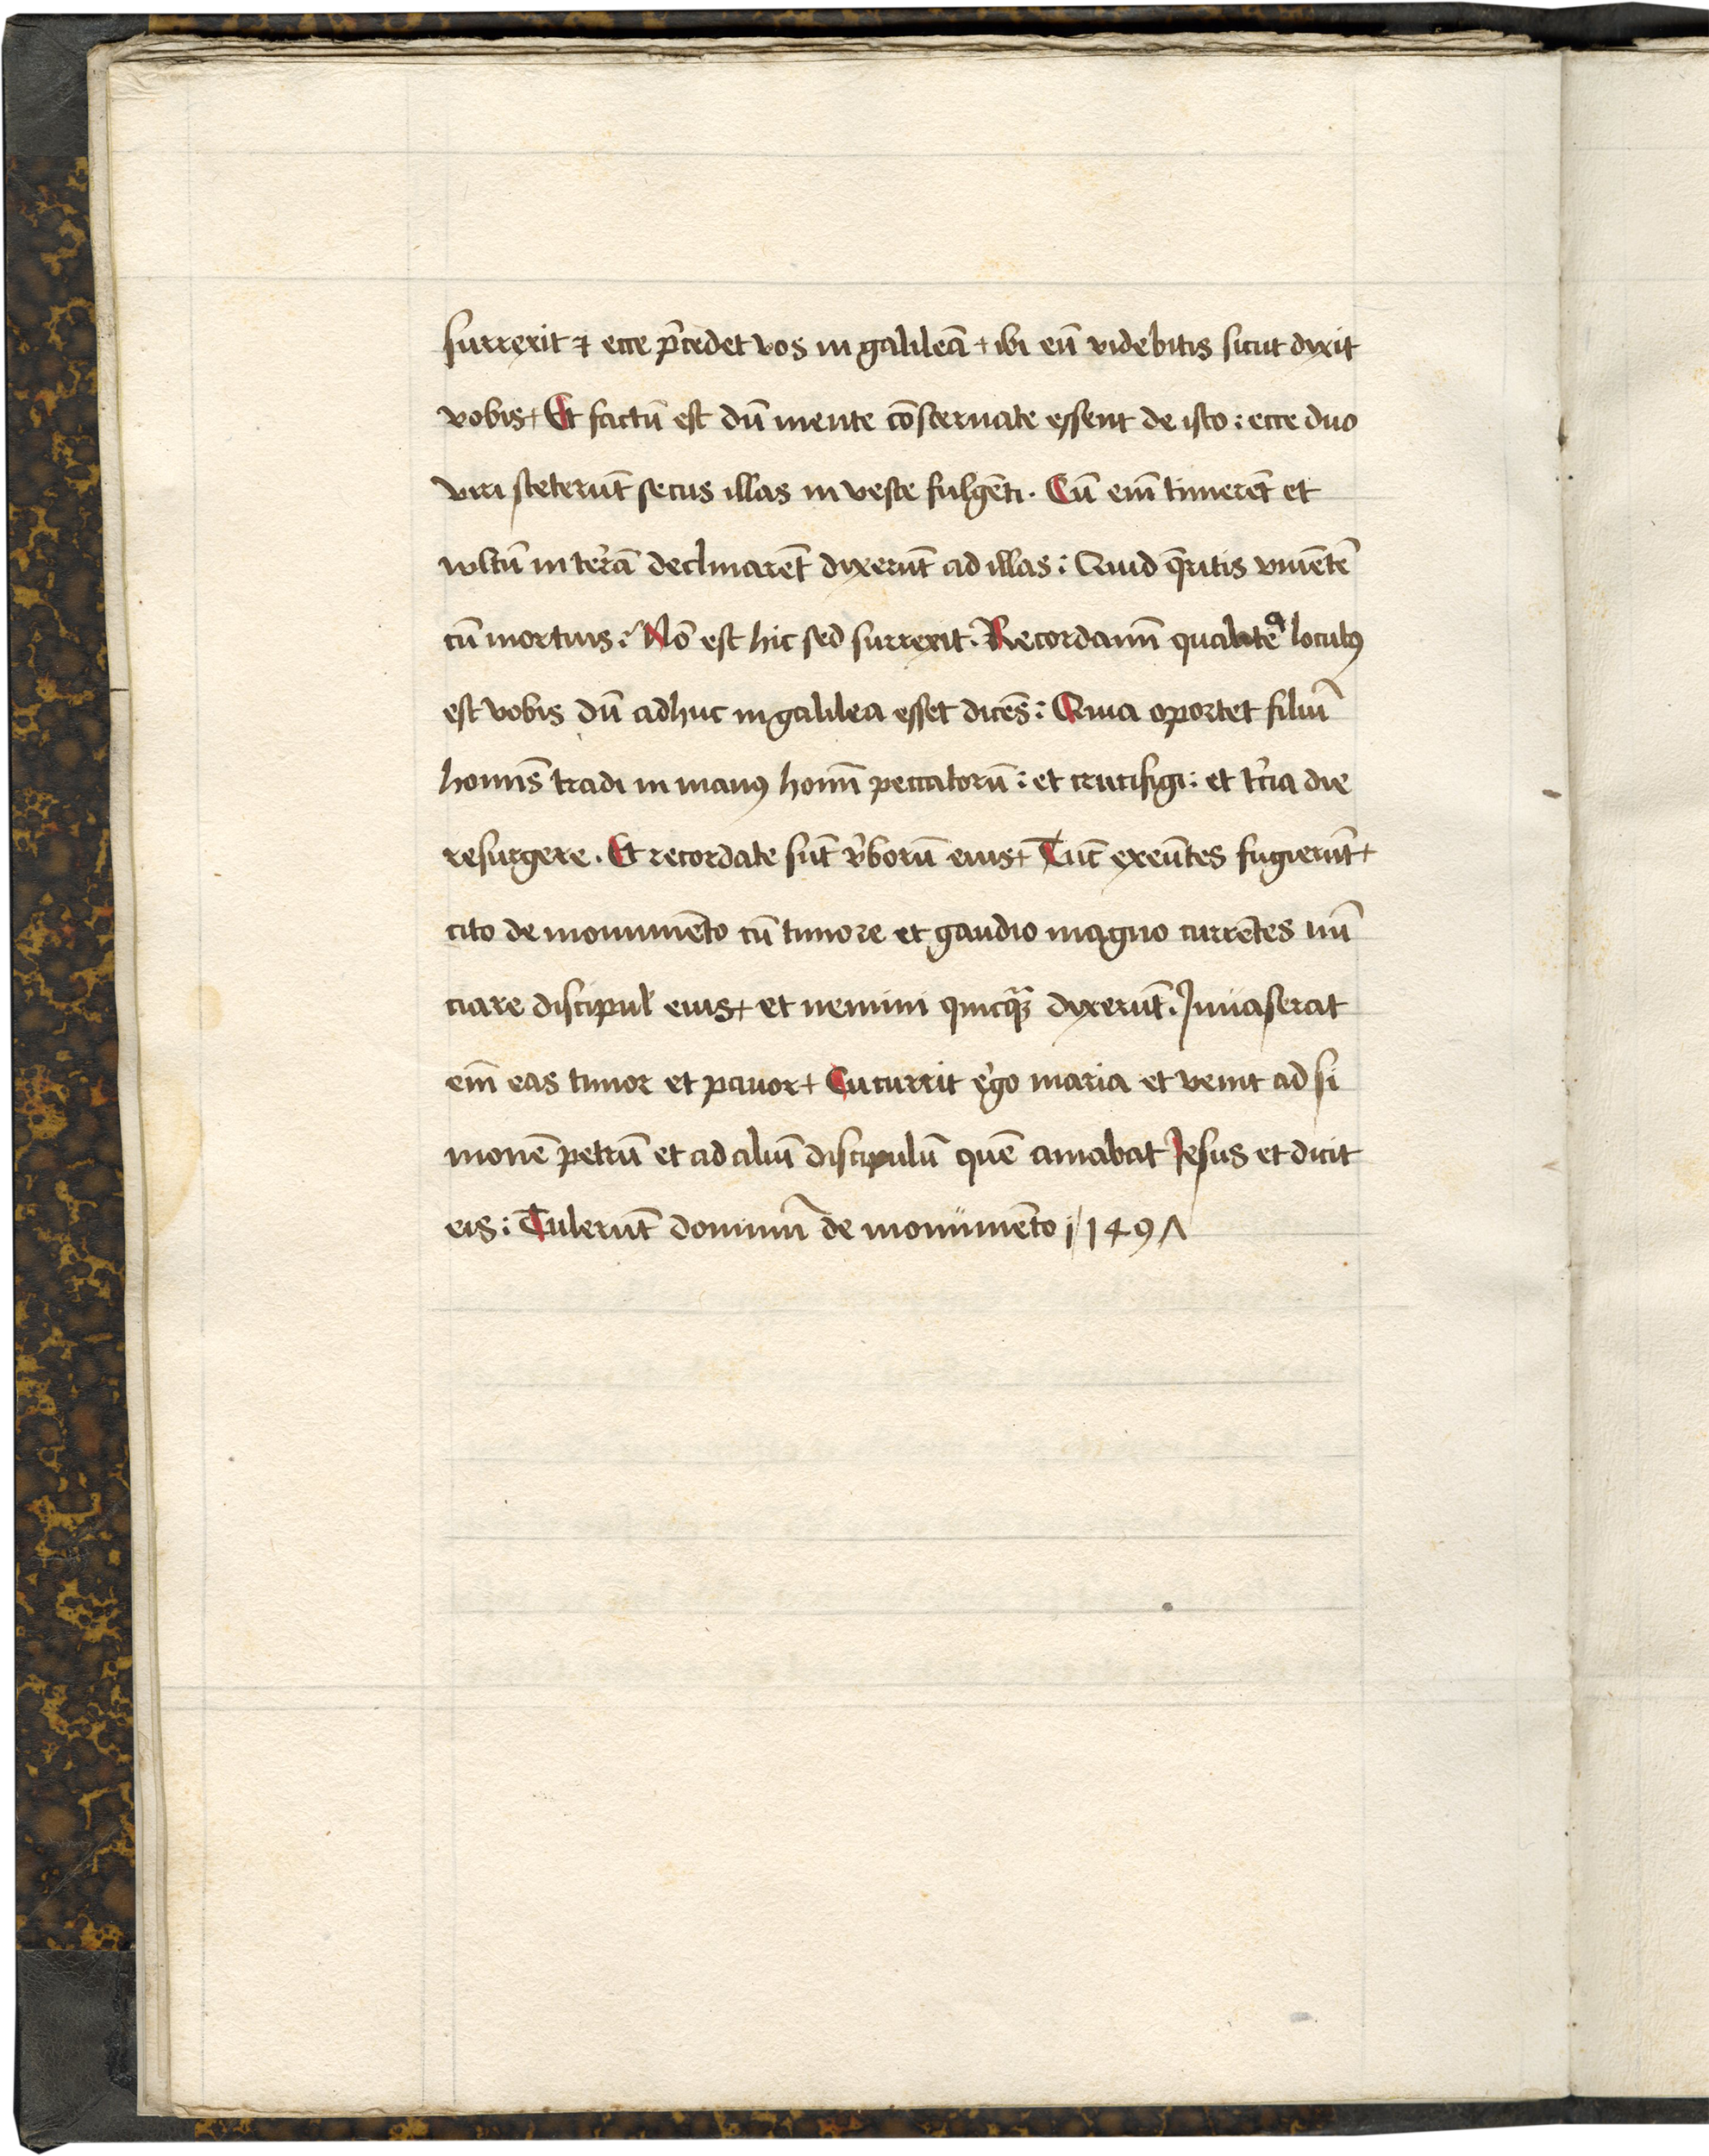 surrexit ⁊ ecce p̄cedet vos in galileā + ibi eū videbitis sicut dixit
vobis+ Et factū est dū mente cōsternate essent de isto : ecce duo
viri steterūt secus illas in veste fulgēti . Cū eni̅ timerēt et
vultū in ter̄ā declinarēt dixerūt ad illas : Quid q̄ritis viuētē
cū mortuis : Nō est hic sed surrexit . Recordamī qualitē locutꝰ
est vobis dū adhuc in galilea esset dicēs : Quia oportet filiū
homīs tradi in manꝰ homī peccatorū : et crucifigi : et t̄cia die
resurgere . Et recordate sūt v̄borū eius+ Tūc exeūtes fugierūt+
cito de monumēto cū timore et gaudio magno currētes nū
ciare discipul̛ eius+ et nemini quicꝗ̄ dixerūt . Inuaserat
em̄ eas timor et pauor+ Cucurrit ergo maria et venit ad si
monē petrū et ad aliū discipulū quē amabat Jesus et dicit
eis : Tulerūt dominū de monumēto i 149Λ